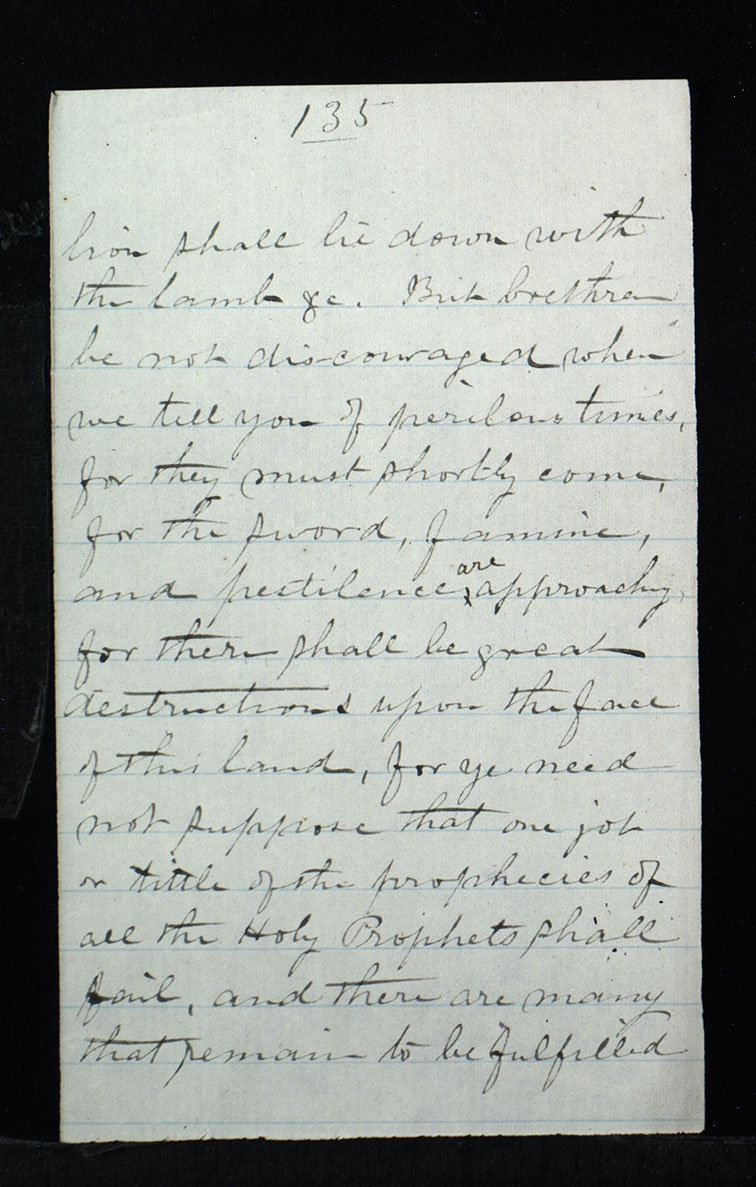 135
lion shall lie down with
the lamb &c. But brethren
be not discouraged when
we tell you of perilous times,
for they must shortly come,
for the sword, famine,
and pestilence are approachg,
for there shall be great
destructions upon the face
of this land, for ye need
not suppose that one jot
or tittle of the prophecies of
all the Holy Prophets shall
fail, and there are many
that remain to be fulfilled